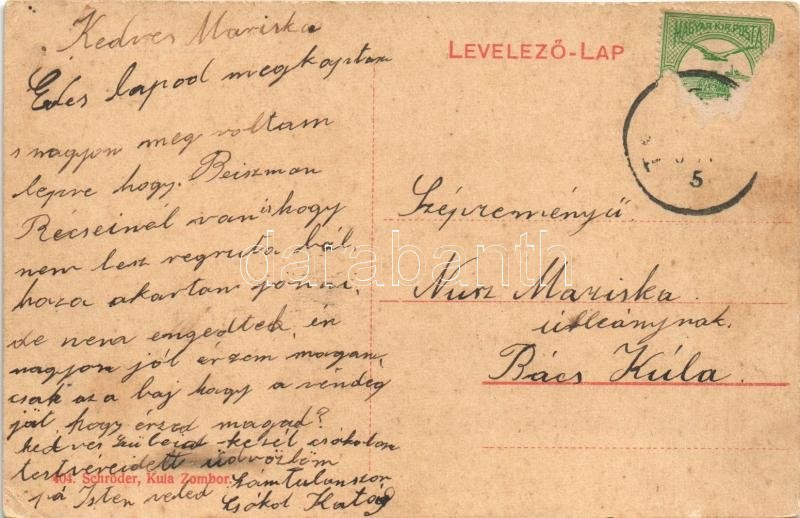 Kedves Mariska
Édes lapod megkaptam
s nagyon meg voltam
lepve hogy. Beiszman
Récseinél van is hogy
nem lesz regruta bál.
haza akartam jönni.
de nem engedtek, én
nagyon jól érzem magam,
csak az a baj hogy a vendég
hogy érzed magad?
kedves szüleid kezét csókolom
testvéreidett üdvözlöm
404. Schröder, Kula Zombor.
Számtalanszor
Isten veled
Csókol Kató
LEVELEZŐ-LAP
MAGYAR KIR. POSTA
5
Szépreményü
Nusz Mariska
úrleánynak.
Bács Kúla.
darabanth